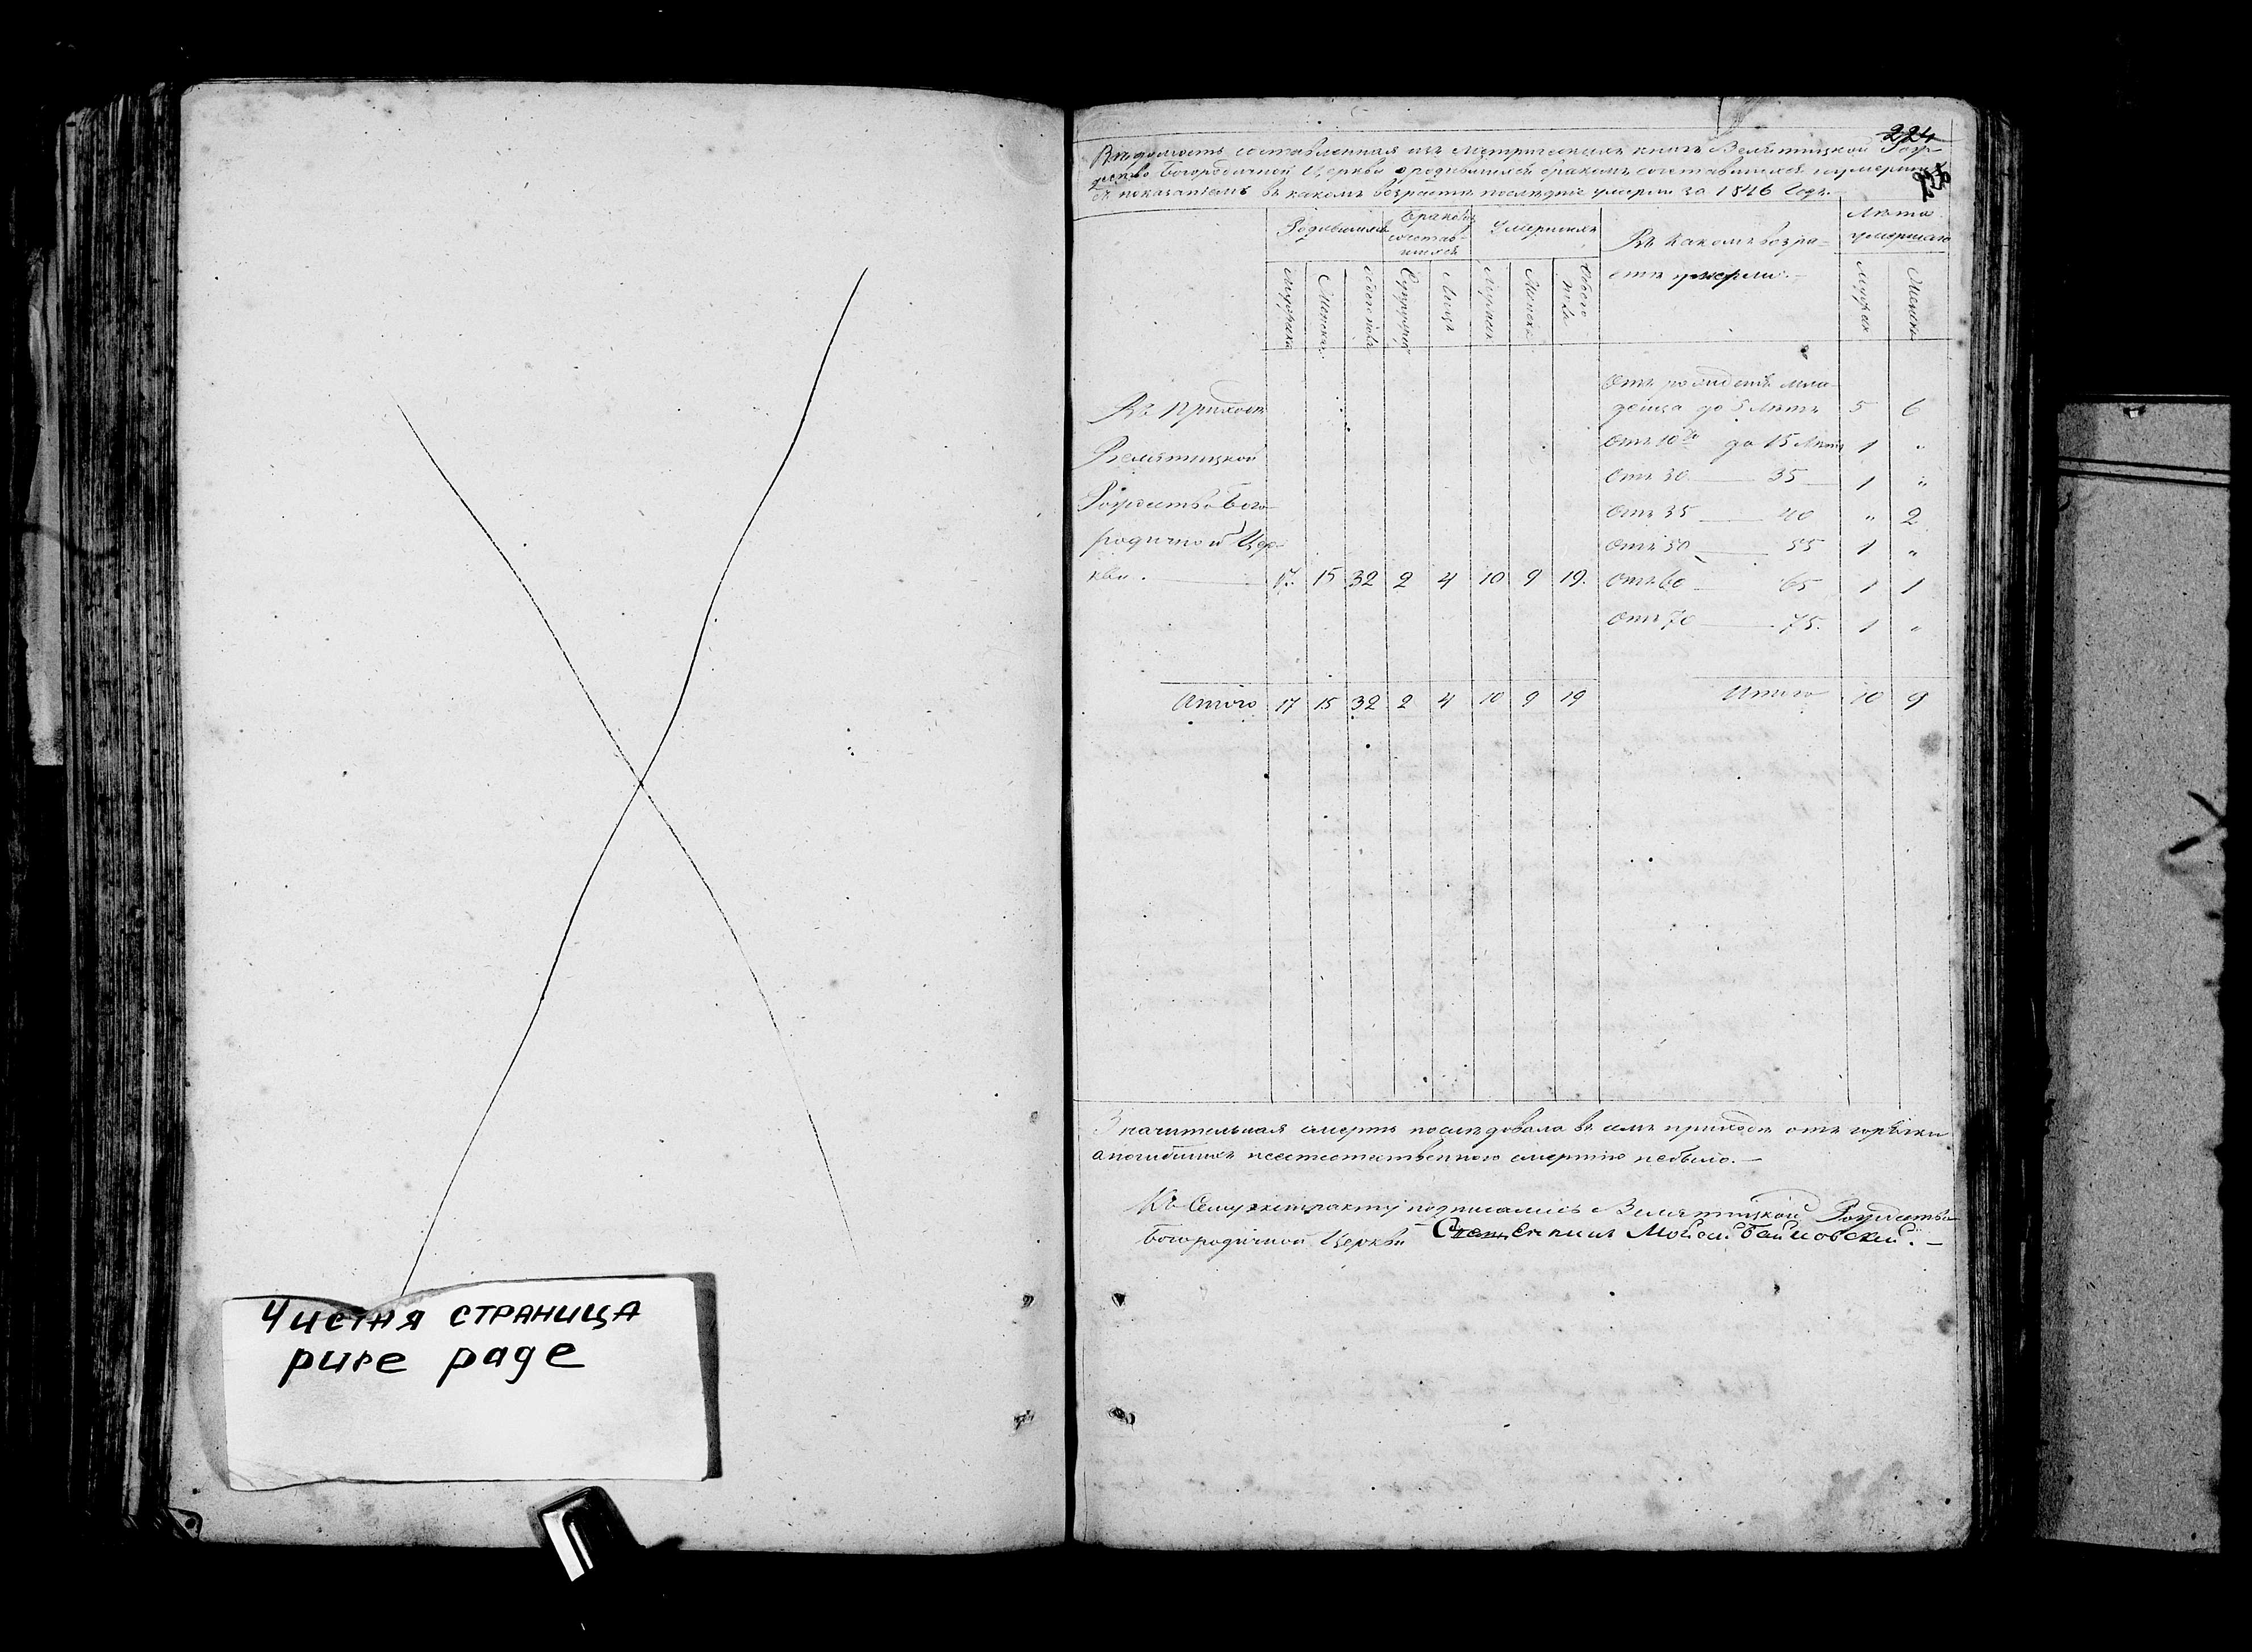 Чистая страница
pure page
224
Вѣдомость составленная изъ метрическихъ книгъ Велятицкой Рож-
дество Богородичной Церкви о родившихся бракомъ сочетавшихся и умершихъ
съ показаніемъ въ какомъ возрастѣ послѣдніе умерли за 1846 Годъ.
Родившихся
Бракомъ сочетав-шихся
Умершихъ
Въ какомъ возра-
стѣ умерли.
Лѣта умершаго
Мужска Женска обоего пола Супружествъ Лицъ Мужеск Женска Обоего пола Мужеск Женска
Отъ рожденія мла-
Въ Приходѣ
денца до 5 Лѣтъ 5 6
Отъ 10 до 15 Лѣтъ 1 "
Велятицкой
Отъ 30 — 35 — 1 "
Рождество Бого-
Отъ 35 — 40 " 2
родичной Цер-
Отъ 50 — 55 1 "
кви. — 17. 15 32 2 4 10 9 19. Отъ 60 — 65 1 1
Отъ 70 — 75. 1 "
Итого 17 15 32 2 4 10 9 19 Итого 10 9
Значительная смерть послѣдовала въ семъ приходѣ отъ горячки
а погибшихъ неестественною смертію небыло. —
Къ Сему экстракту подписались Велятицкой Рождество
Богородичной Церкви Священникъ Мойсей Баиковскій. —